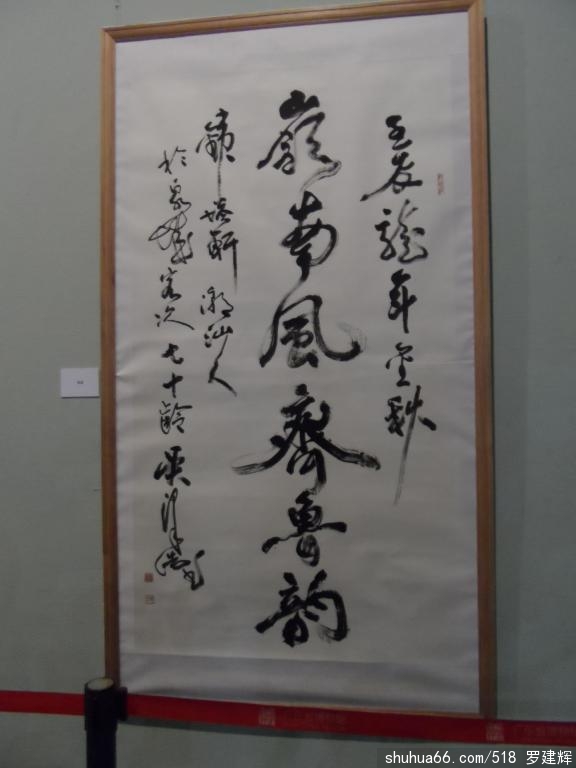 壬辰龍年金秋
嶺南風齊魯韵
嶺 軒 潮汕人
於泉城客次七十齡吳澤浩
shuhua66.com/518 罗建辉